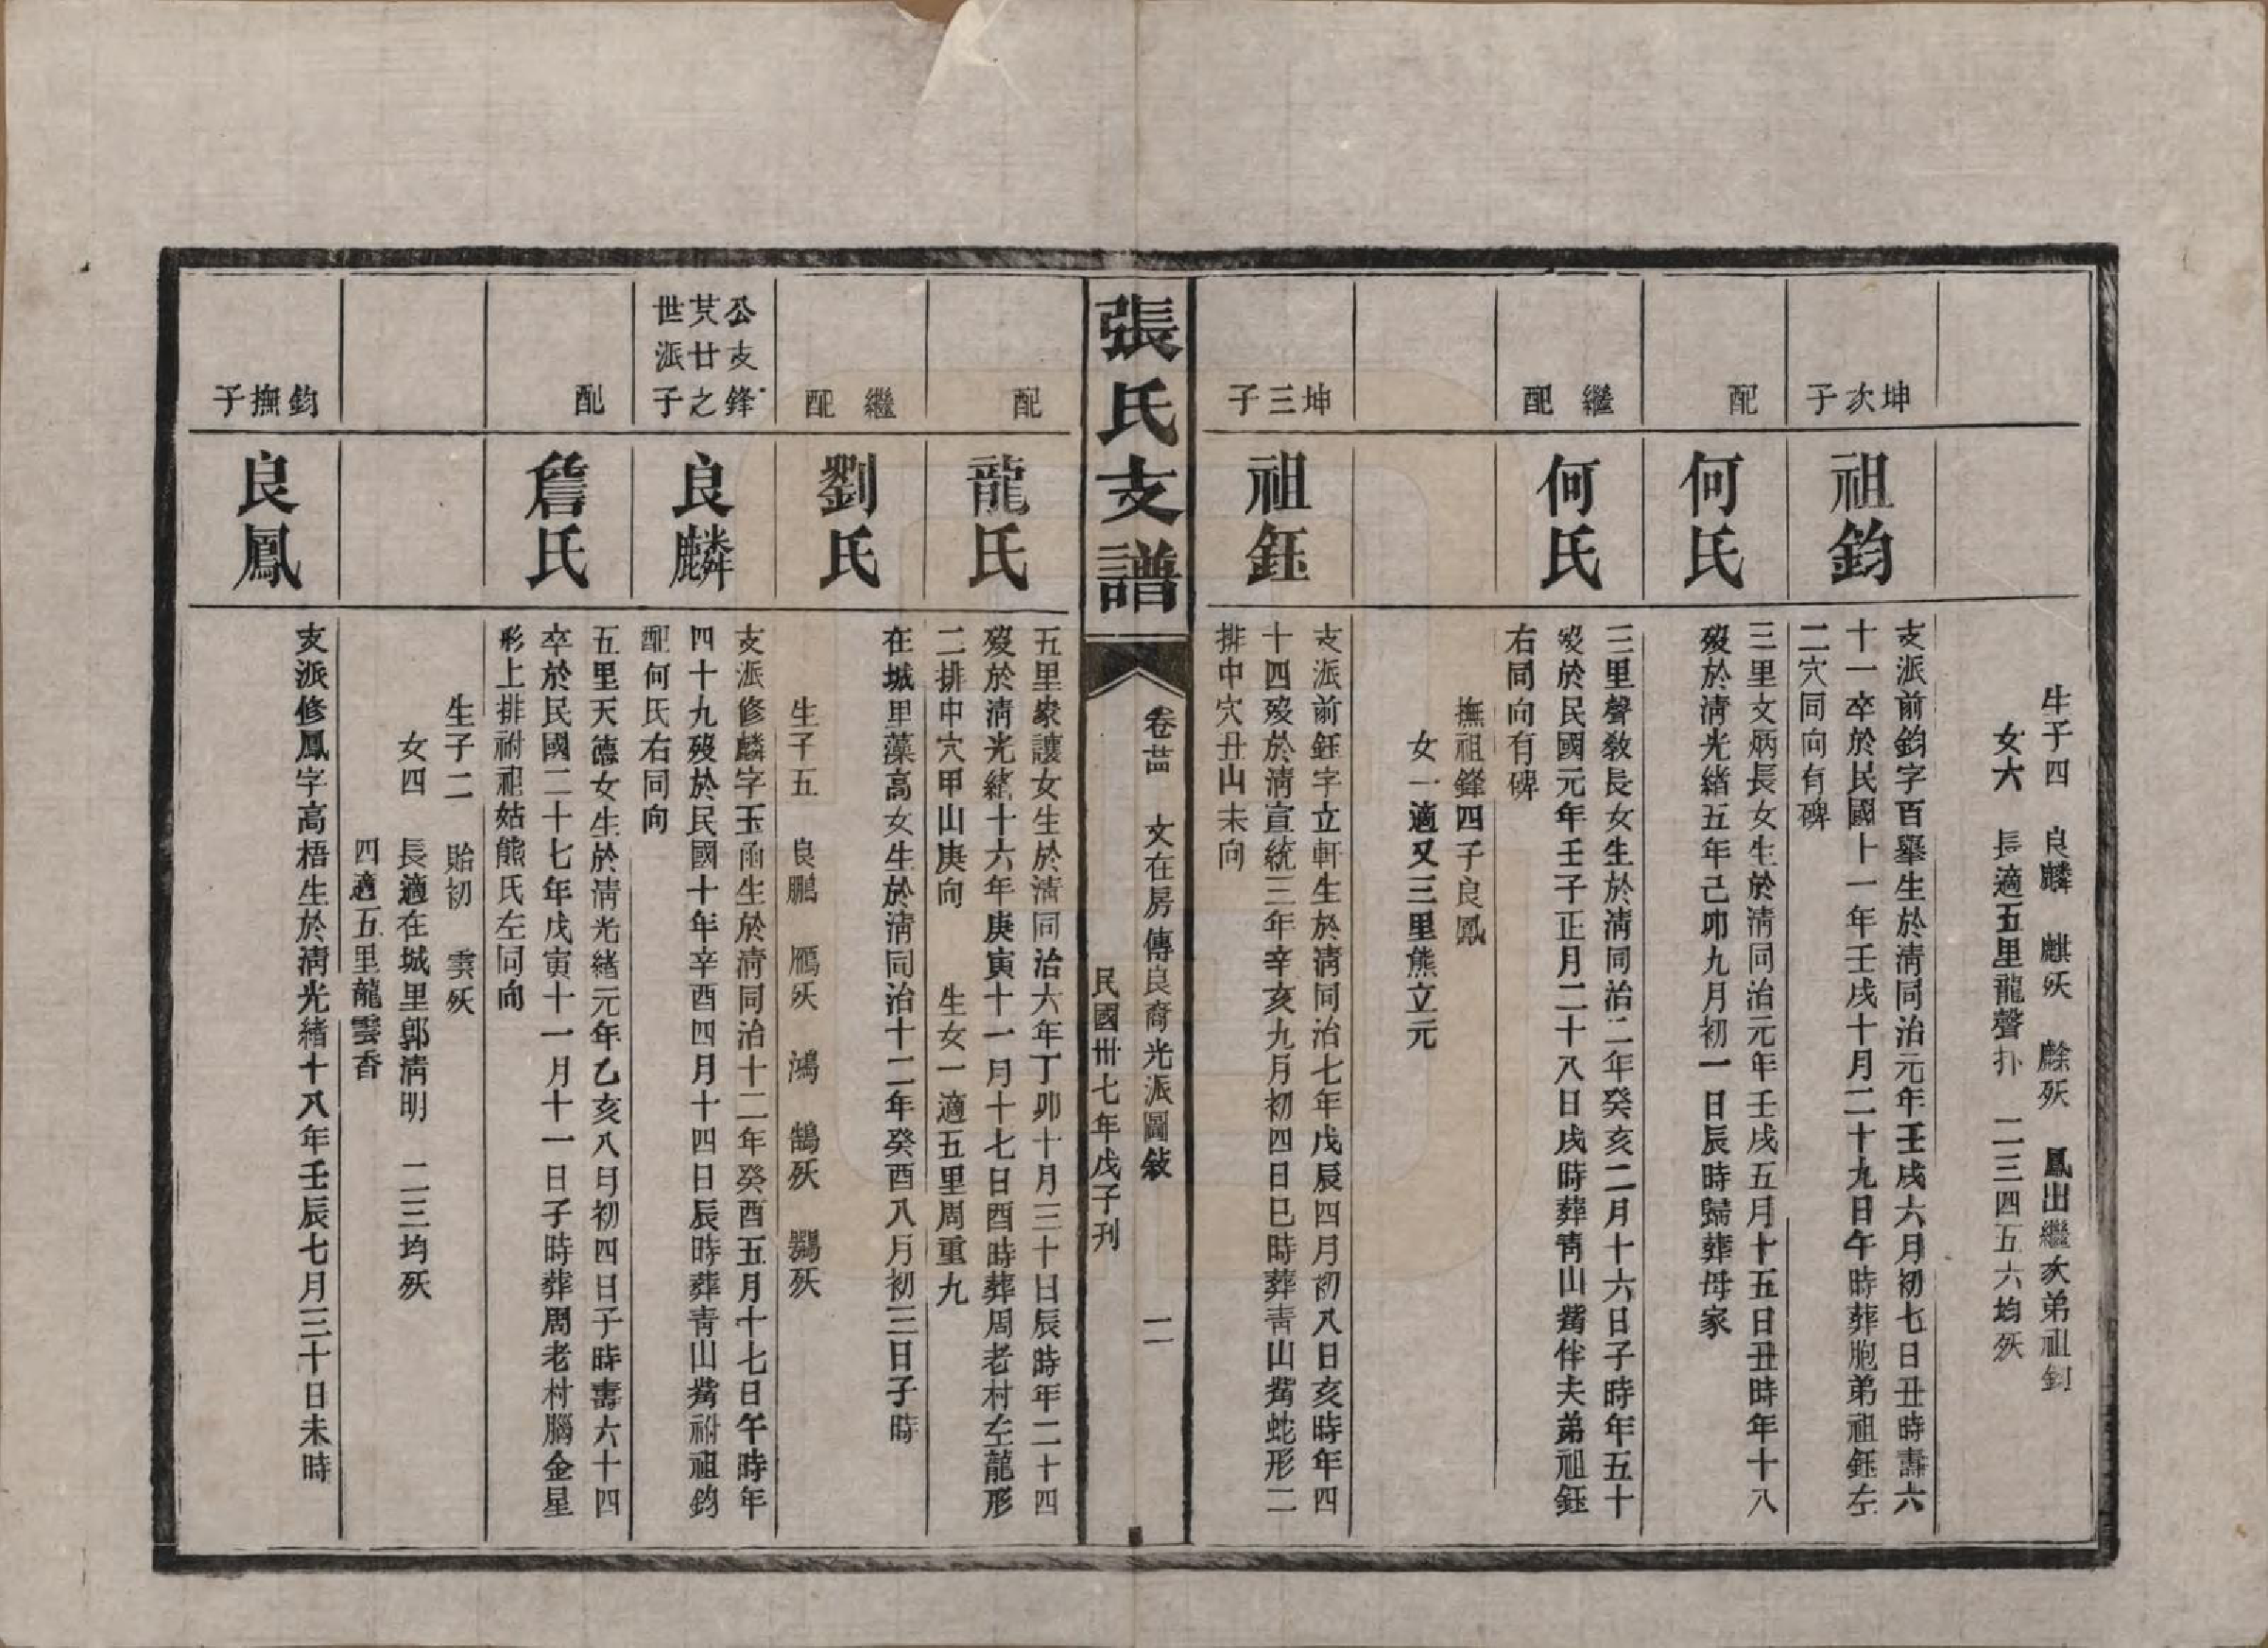 生子四　良麟　麒殀　䴡殀　鳳出繼次弟祖鈞
女六　長適五里龍聲扑　二三四五六均殀
坤次子
祖鈞
支派前鈞字百舉生於淸同治元年壬戌六月初七日丑時壽六
十一卒於民國十一年壬戌十月二十九日午時葬胞弟祖鈺左
二穴同向有碑
配
何氏
三里文炳長女生於淸同治元年壬戌五月十五日丑時年十八
歿於淸光緒五年己卯九月初一日辰時歸葬母家
繼配
何氏
三里聲敎長女生於淸同治二年癸亥二月十六日子時年五十
歿於民國元年壬子正月二十八日戌時葬靑山觜伴夫弟祖鈺
右同向有碑
撫祖鋒四子良鳳
女一適又三里熊立元
坤三子
祖鈺
支派前鈺字立軒生於淸同治七年戊辰四月初八日亥時年四
十四歿於淸宣統三年辛亥九月初四日巳時葬靑山觜蛇形二
排中穴丑山未向
張氏支譜
卷卌　文在房傳良裔光派圖敍　二
民國卅七年戊子刊
配
龍氏
五里衆讓女生於淸同治六年丁卯十月三十日辰時年二十四
歿於淸光緒十六年庚寅十一月十七日酉時葬周老村左龍形
二排中穴甲山庚向　生女一適五里周重九
繼配
劉氏
在城里藻高女生於淸同治十二年癸酉八月初三日子時
生子五　良鵬　鴈殀　鴻　鵠殀　鶚殀
公支鋒
芃廿之
世派子
良麟
支派修麟字玉函生於淸同治十二年癸酉五月十七日午時年
四十九歿於民國十年辛酉四月十四日辰時葬靑山觜祔祖鈞
配何氏右同向
配
詹氏
五里天德女生於淸光緒元年乙亥八月初四日子時壽六十四
卒於民國二十七年戊寅十一月十一日子時葬周老村腦金星
形上排祔祖姑熊氏左同向
生子二　貽初　雲殀
女四　長適在城里郭淸明　二三均殀
四適五里龍雲香
鈞撫子
良鳳
支派修鳳字高梧生於淸光緒十八年壬辰七月三十日未時